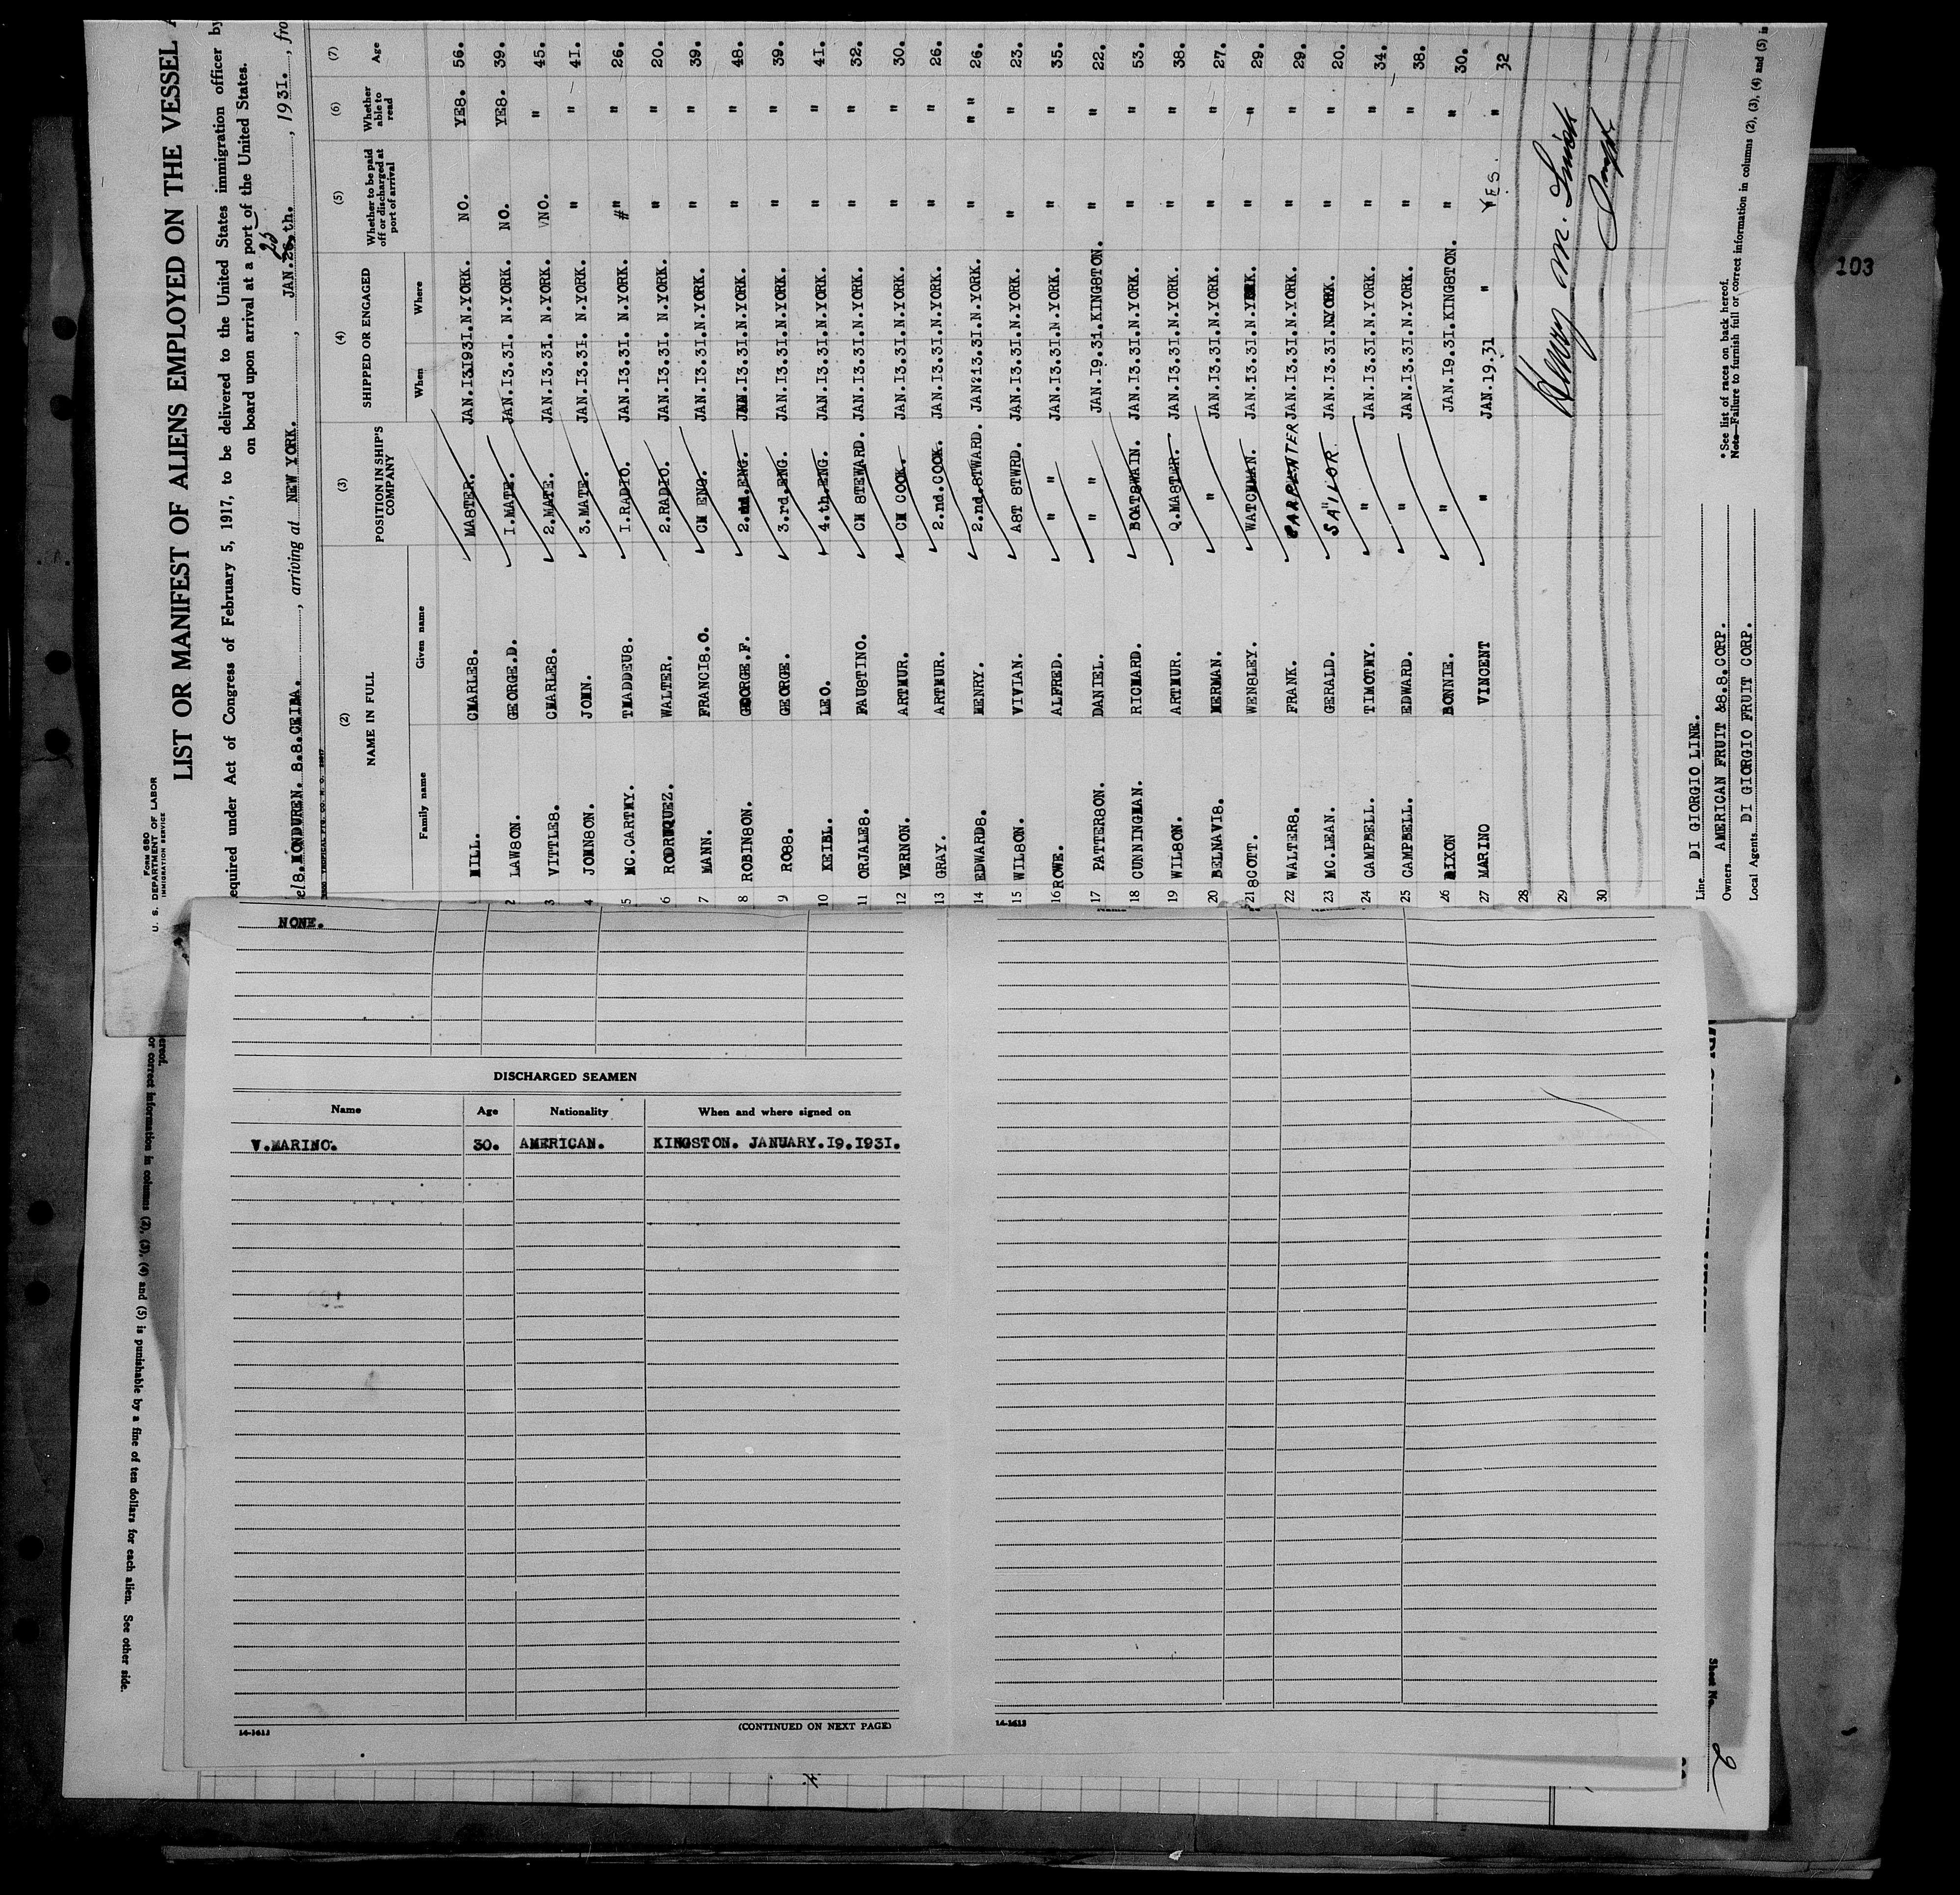 FORM 680
U. S. DEPARTMENT OF LABOR
IMMIGRATION SERVICE
LIST OR MANIFEST OF ALIENS EMPLOYED ON THE VESSEL
equired under Act of Congress of February 5, 1917, to be delivered to the United States immigration officer by
on board upon arrival at a port of the United States.
el S.HONDUREN. S.S.CEIBA. , arriving at NEW YORK. , JAN.26.th. 25 , 1931. , fro
(2) (3) (4) (5) (6) (7)
NAME IN FULL POSITION IN SHIP'S COMPANY SHIPPED OR ENGAGED Whether to be paid off or discharged at port of arrival Whether able to read Age
Family name Given name When Where
1 HILL. CHARLES. MASTER. JAN.I3I93I. N.YORK. NO. YES. 56.
2 LAWSON. GEORGE.D. I.MATE. JAN.I3.3I. N.YORK. NO. YES. 39.
3 VITTLES. CHARLES. 2.MATE. JAN.I3.3I. N.YORK. NO. " 45.
4 JOHNSON. JOHN. 3.MATE. JAN.I3.3I. N.YORK. " " 41.
5 MC.CARTHY. THADDEUS. I.RADIO. JAN.I3.3I. N.YORK. " " 26.
6 RODRUQUEZ. WALTER. 2.RADIO. JAN.I3.3I. N.YORK. " " 20.
7 MANN. FRANCIS.O. CH ENG. JAN.I3.3I.N.YORK. " " 39.
8 ROBINSON. GEORGE.F. 2.nd.ENG. JAN.I3.3I.N.YORK. " " 48.
9 ROSS. GEORGE. 3.rd.ENG. JAN.I3.3I.N.YORK. " " 39.
10 KEIBL. LEO. 4.th.ENG. JAN.I3.3I.N.YORK. " " 41.
11 ORJALES. FAUSTINO. CH STEWARD. JAN.I3.3I.N.YORK. " " 32.
12 VERNON. ARTHUR. CH COOK. JAN.I3.3I.N.YORK. " " 30.
13 GRAY. ARTHUR. 2.nd.COOK. JAN.I3.3I.N.YORK. " " 26.
14 EDWARDS. HENRY. 2.nd.STWARD. JAN.I3.3I.N.YORK. " " " 26.
15 WILSON. VIVIAN. AST STWRD. JAN.I3.3I.N.YORK. " " 23.
16 ROWE. ALFRED. " JAN.I3.3I.N.YORK. " " 35.
17 PATTERSON. DANIEL. " JAN.I9.31.KINGSTON. " " 22.
18 CUNNINGHAM. RICHARD. BOATSWAIN. JAN.I3.3I.N.YORK. " " 53.
19 WILSON. ARTHUR. Q.MASTER. JAN.I3.3I.N.YORK. " " 38.
20 BELNAVIS. HERMAN. " JAN.I3.3I.N.YORK. " " 27.
21 SCOTT. WENSLEY. WATCHMAN. JAN.I3.3I.N.YORK. " " 29.
22 WALTERS. FRANK. CARPENTER JAN.I3.3I.N.YORK. " " 29.
23 MC.LEAN. GERALD. SAILOR. JAN.I3.3I.N.YORK. " " 20.
24 CAMPBELL. TIMOTHY. " JAN.I3.3I.N.YORK. " " 34.
25 CAMPBELL. EDWARD. " JAN.I3.3I.N.YORK. " " 38.
26 DIXON BONNIE. " JAN.I9.3I.KINGSTON. " " 30.
27 MARINO VINCENT " JAN.19.31 " YES. " 32
28
29
30
Henry M. Smith
Line DI GIORGIO LINE.
Owners AMERICAN FRUIT &S.S.CORP.
Local Agents DI GIORGIO FRUIT CORP.
* See list of races on back hereof.
Note—Failure to furnish full or correct information in columns (2), (3), (4) and (5) is
103
NONE.
DISCHARGED SEAMEN
Name Age Nationality When and where signed on
V.MARINO. 30. AMERICAN. KINGSTON. JANUARY.I9.I93I.
14-3613 (CONTINUED ON NEXT PAGE)
14-3613
ereof.
or correct information in columns (2), (3), (4) and (5) is punishable by a fine of ten dollars for each alien. See other side.
Sheet No. 2